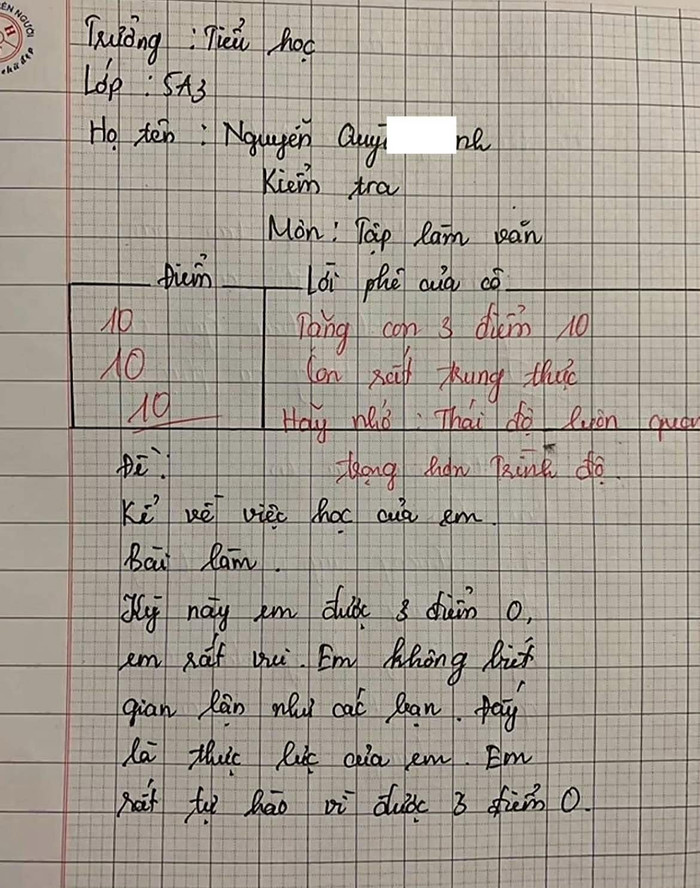 ÊN NGƯỜI
H
chữ đẹp
Trường : Tiểu học
Lớp : 5A3
Họ tên : Nguyễn Quỳ nh
Kiểm tra
Môn : Tập làm văn
Điểm Lời phê của cô
10 Tặng con 3 điểm 10
10 Con rất trung thực
10 Hãy nhớ : Thái độ luôn quan
trọng hơn Trình độ.
Đề :
Kể về việc học của em.
Bài làm.
Kỳ này em được 3 điểm 0,
em rất vui. Em không biết
gian lận như các bạn. Đấy
là thực lực của em. Em
rất tự hào vì được 3 điểm 0.